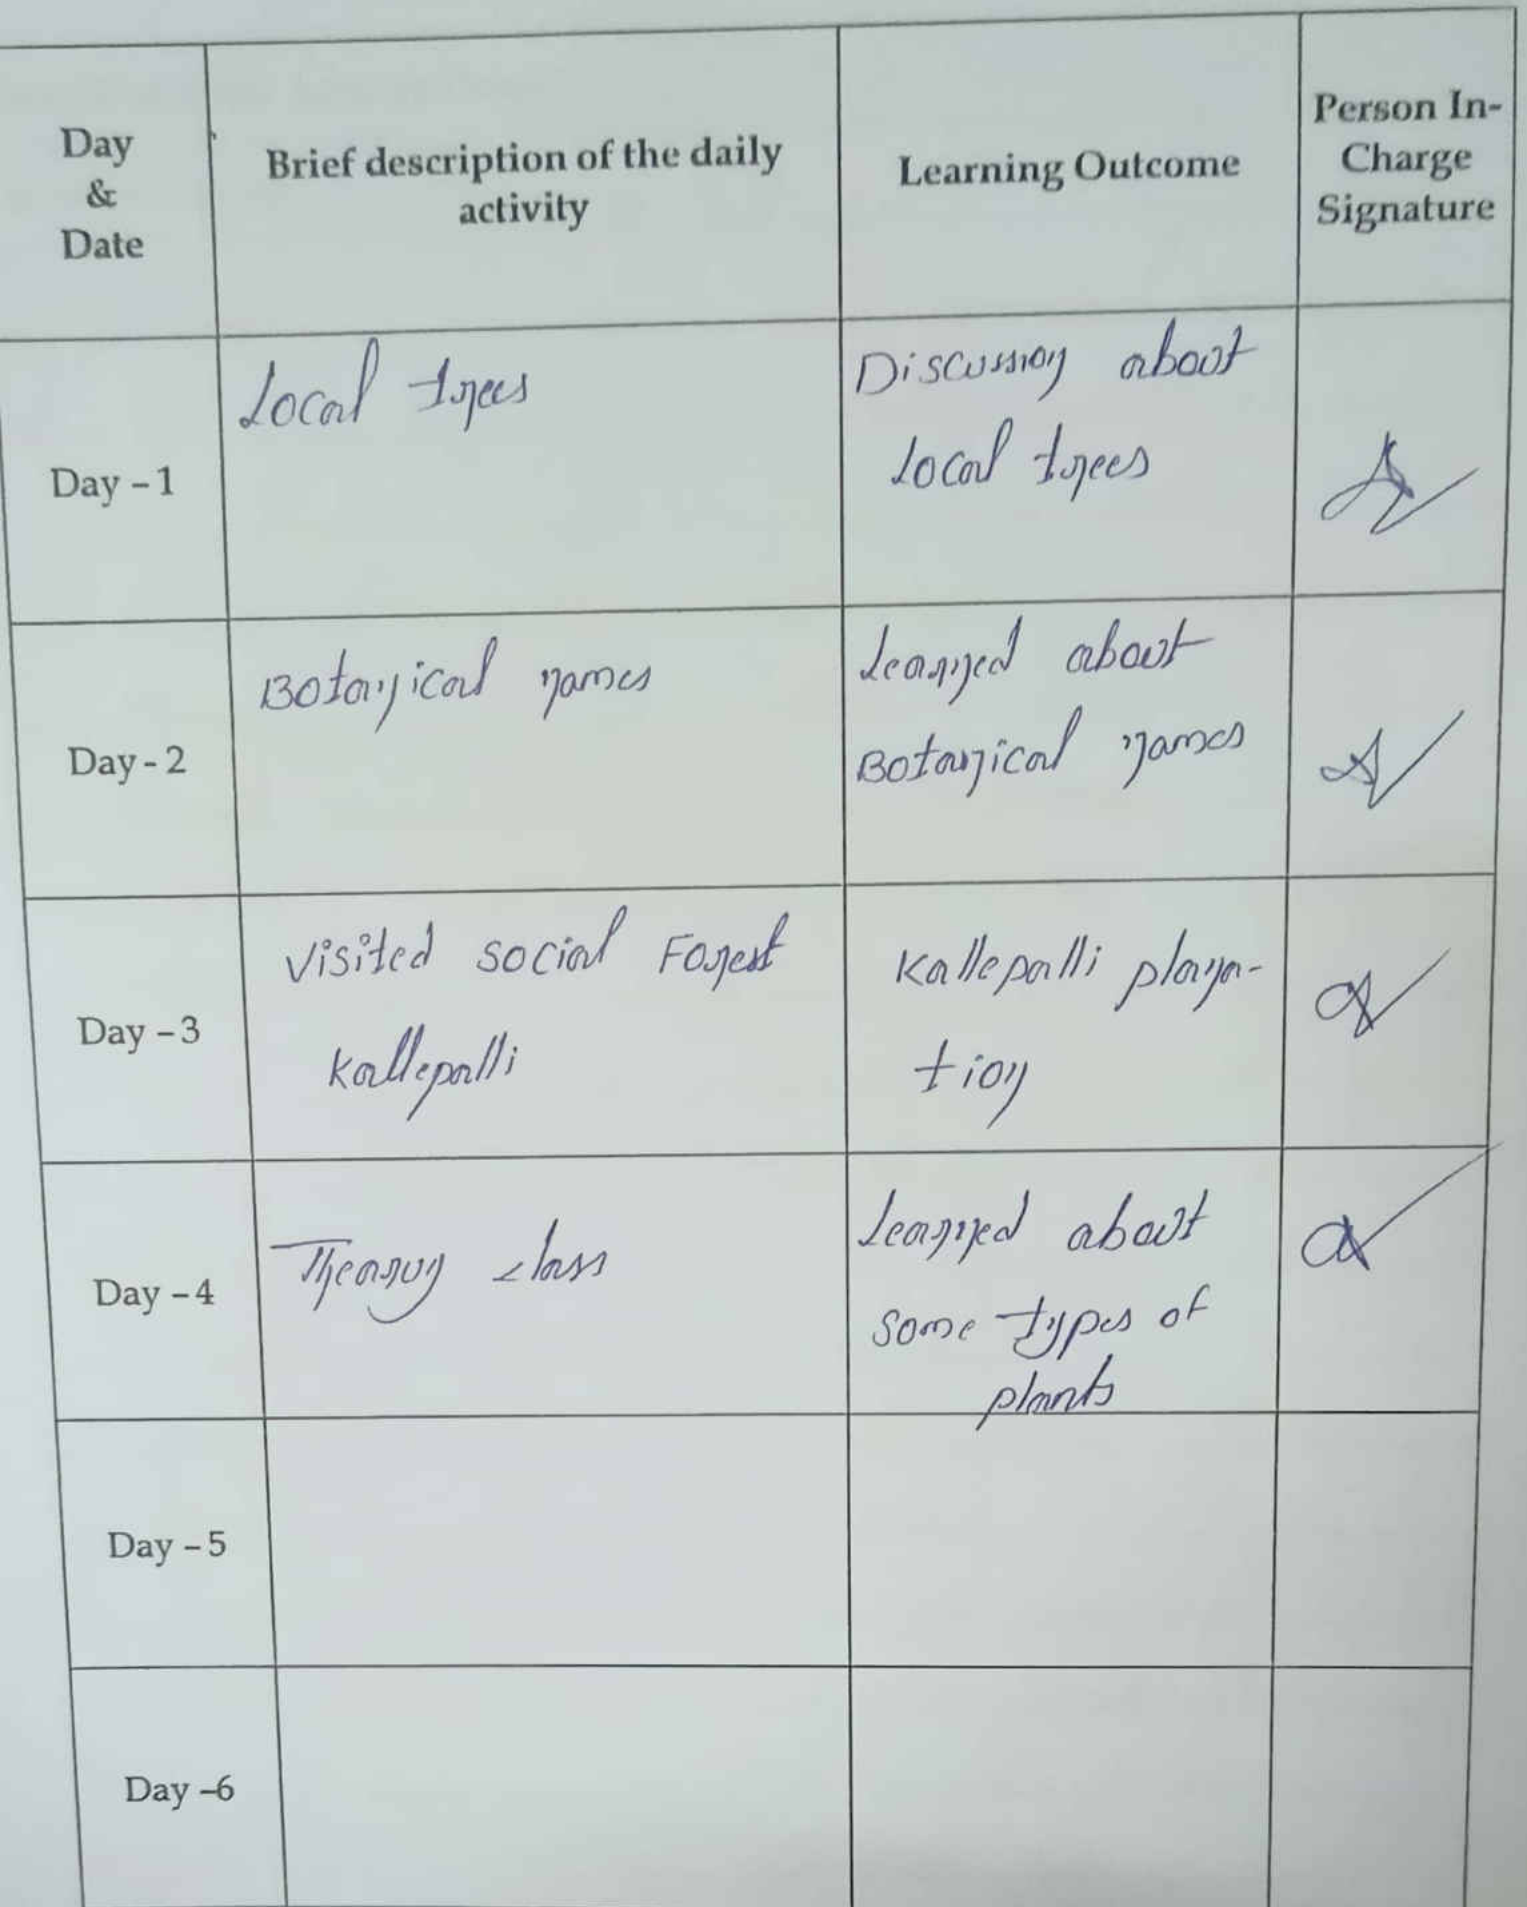 Day
&
Date
Brief description of the daily
activity
Learning Outcome
Person In-
Charge
Signature
Day – 1
Local trees
Discussion about
Local trees
Day - 2
Botanical names
Learned about
Botanical names
Day – 3
Visited social Forest
Kallepalli
Kallepalli plana-
tion
Day – 4
Theory class
Learned about
some types of
plants
Day – 5
Day –6